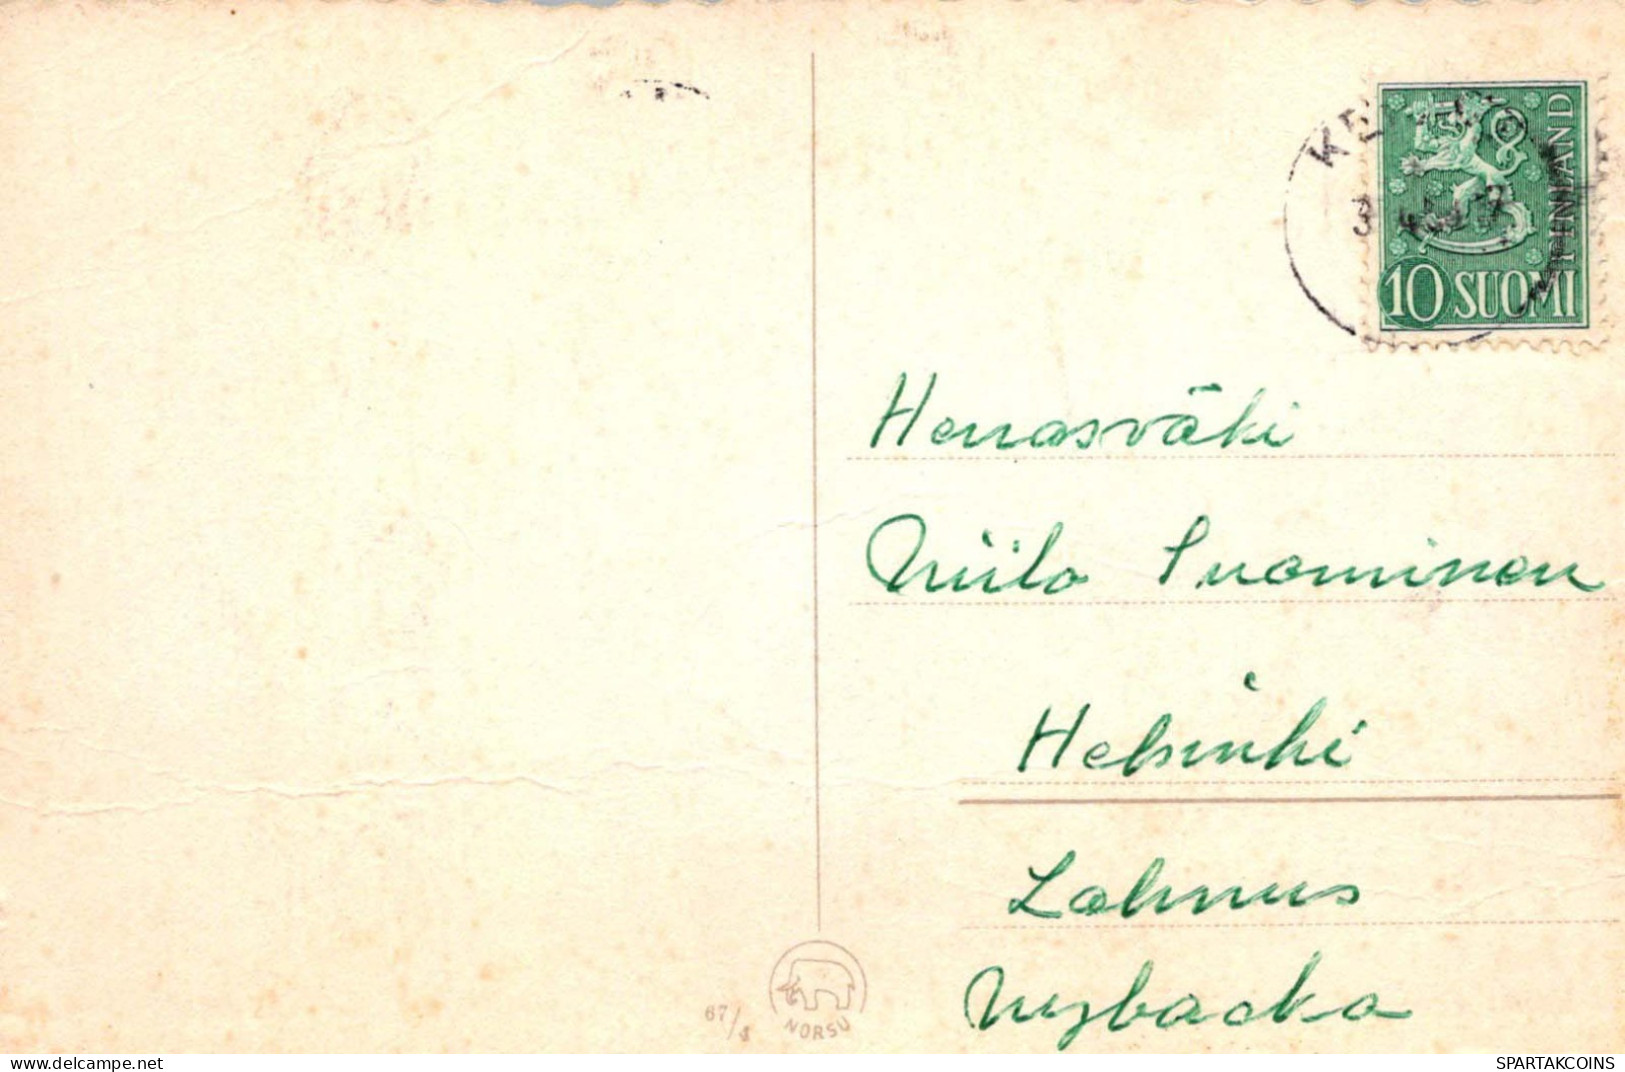 FINLAND
10 SUOMI
Herrasväki
Niilo Suominen
Helsinki
Lahnus
Nybacka
67/4
NORSU
https://www.delcampe.net
SPARTAKCOINS